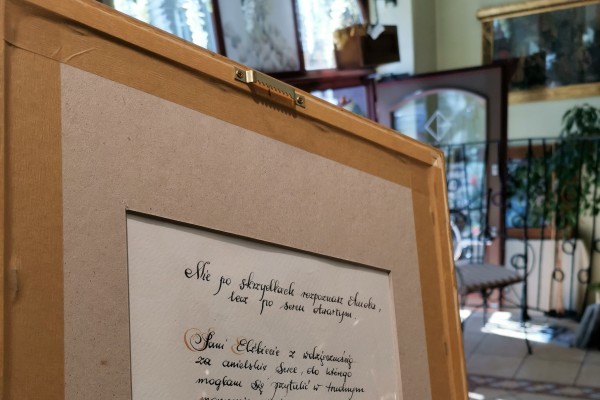 Nie po skrzydłach rozpoznasz Anioła,
lecz po sercu otwartym
Pani Elżbiecie z wdzięcznością
za anielskie serce, do którego
mogłam się przytulić w trudnym